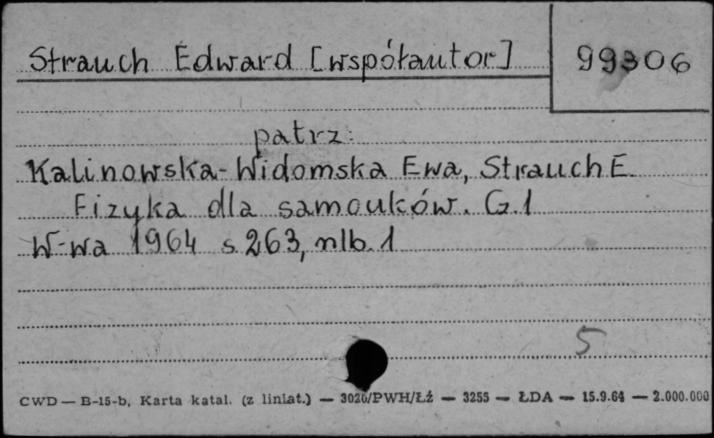 Strauch Edward [współautor]
99306
patrz:
Kalinowska-Widomska Ewa, Strauch E.
Fizyka dla samouków. G.1
W-wa 1964 s 263, nlb. 1
5
CWD — B-15-b, Karta katal. (z liniat.) — 3020/PWH/Łź — 3255 — ŁDA — 15.9.64 — 2.000.000